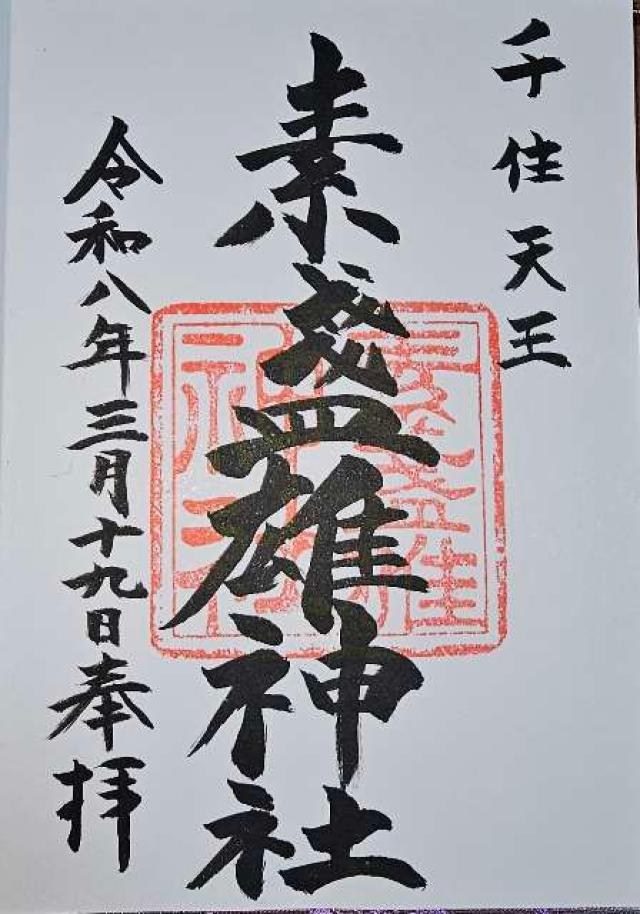 千住天王
素盞雄神社
令和八年三月十九日奉拝